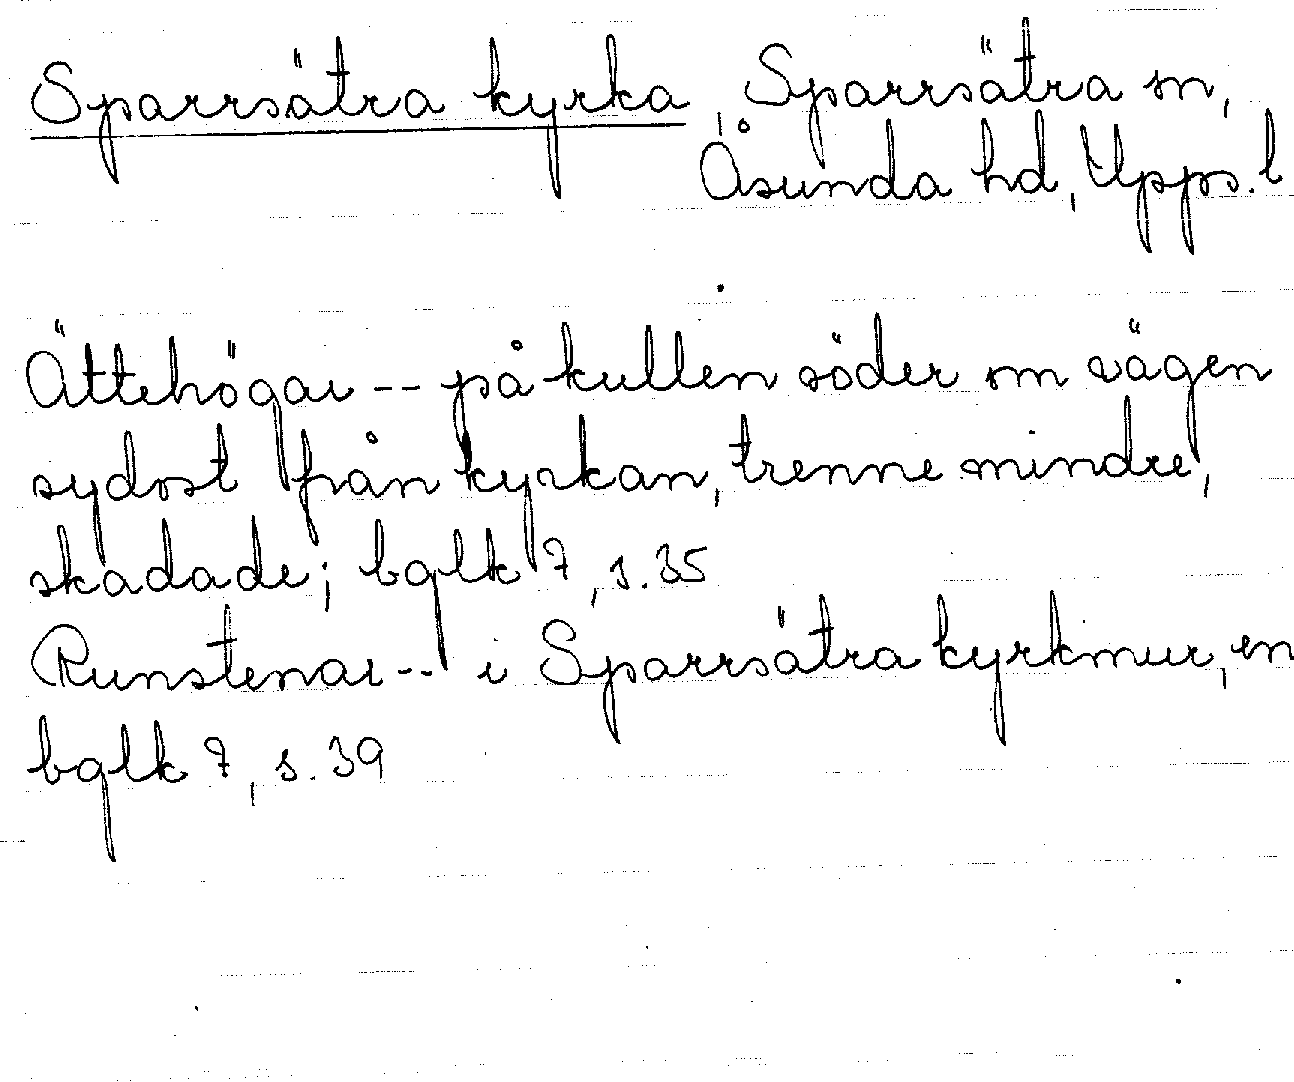 Sparrsätra kyrka, Sparrsätra sn,
Åsunda hd, Upps. l
Ättehögar -- på kullen söder om vägen
sydost från kyrkan, trenne mindre,
skadade; bglk 7, s. 35
Runstenar -- i Sparrsätra kyrkmur, en
bglk 7, s. 39